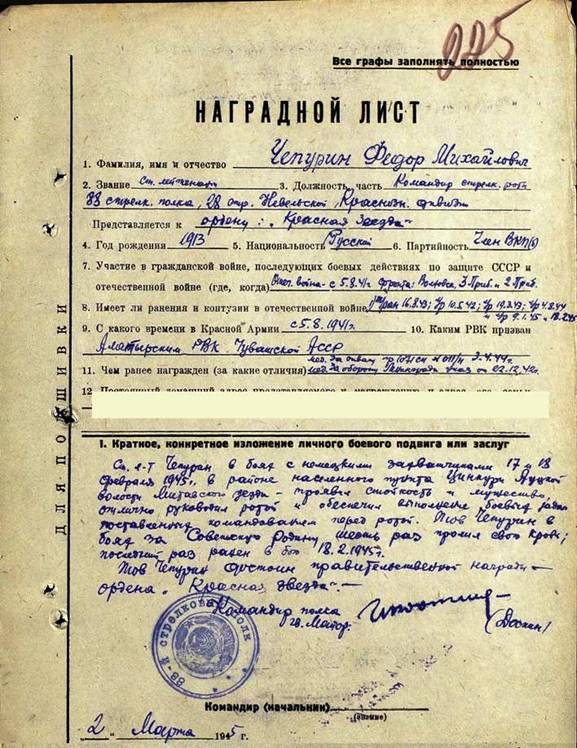 225
Все графы заполнять полностью
НАГРАДНОЙ ЛИСТ
1. Фамилия, имя и отчество Чепурин Федор Михайлович
2. Звание Ст. лейтенант 3. Должность, часть Командир стрелк. роты
88 стрелк. полка, 28 стр. Невельской Краснозн. дивизии
Представляется к ордену: „Красная Звезда"
4. Год рождения 1913 5. Национальность Русский 6. Партийность Член ВКП(б)
7. Участие в гражданской войне, последующих боевых действиях по защите СССР и
отечественной войне (где, когда) война - с 5.8.41г. фронта: 3 Приб. и 2 Приб.
8. Имеет ли ранения и контузии в отечественной войне 16.8.43; 10.5.42; 19.3.43; 4.8.44
9.1.45 18.2.45
9. С какого времени в Красной Армии с 5.8.1941г. 10. Каким РВК призван
Алатырским РВК Чувашской АССР
11. Чем ранее награжден (за какие отличия) мед. За отвагу 3.4.44г.
мед. За оборону указ от 22.12.42г.
12. Постоянный домашний адрес представляемого к награждению и адрес его семьи
I. Краткое, конкретное изложение личного боевого подвига или заслуг
Ст. л-т Чепурин в боях с немецкими захватчиками 17 и 18
февраля 1945г. в районе населенного пункта Цинкури Ауцкой
волости Митавского уезда - проявил стойкость и мужество,
отлично руководил ротой и обеспечил выполнение боевых задач
поставленных командованием перед ротой. Тов Чепурин в
боях за Советскую Родину шесть раз пролил свою кровь;
последний раз ранен в бою 18.2.1945г.
Тов Чепурин достоин правительственной награды -
ордена „Красная Звезда". -
Командир полка
гв. Майор
88-й СТРЕЛКОВЫЙ ПОЛК
Командир (начальник)
(звание)
„2" Марта 1945 г.
ДЛЯ ПОДШИВКИ